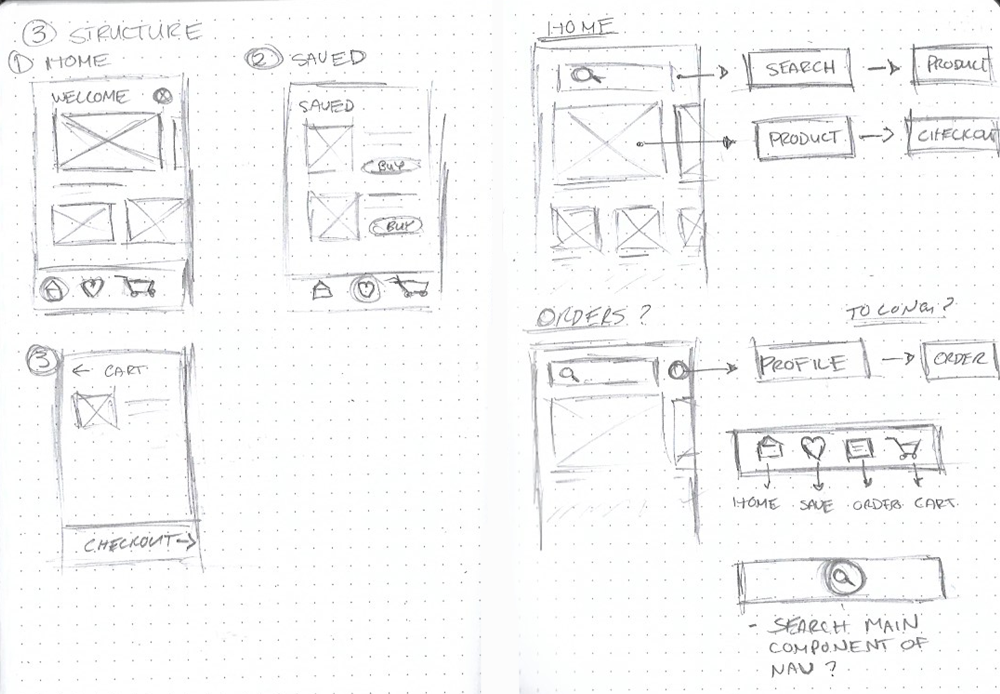 ③ STRUCTURE
① HOME
WELCOME
② SAVED
SAVED
BUY
BUY
③
← CART
CHECKOUT→
HOME
SEARCH → PRODUCT
PRODUCT → CHECKOUT
ORDERS?
TO LONG?
PROFILE → ORDER
HOME SAVE ORDERS CART.
- SEARCH MAIN
COMPONENT OF
NAV?